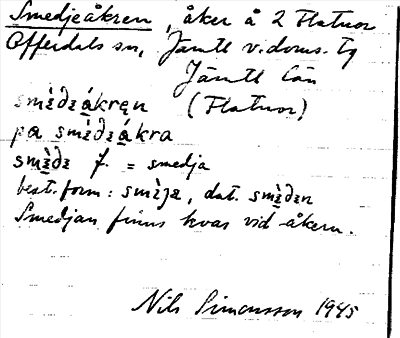 Smedjeåkren, åker å 2 Flatnor
Offerdals sn, Jämtl v. doms. tg
Jämtl län
smèðɛákręn (Flatnor)
pa smèðɛákra
smèðɛ f. = smedja
best. form: smèjɛ, dat. smèðɛn
Smedjan finns kvar vid åkern.
Nils Simonsson 1945